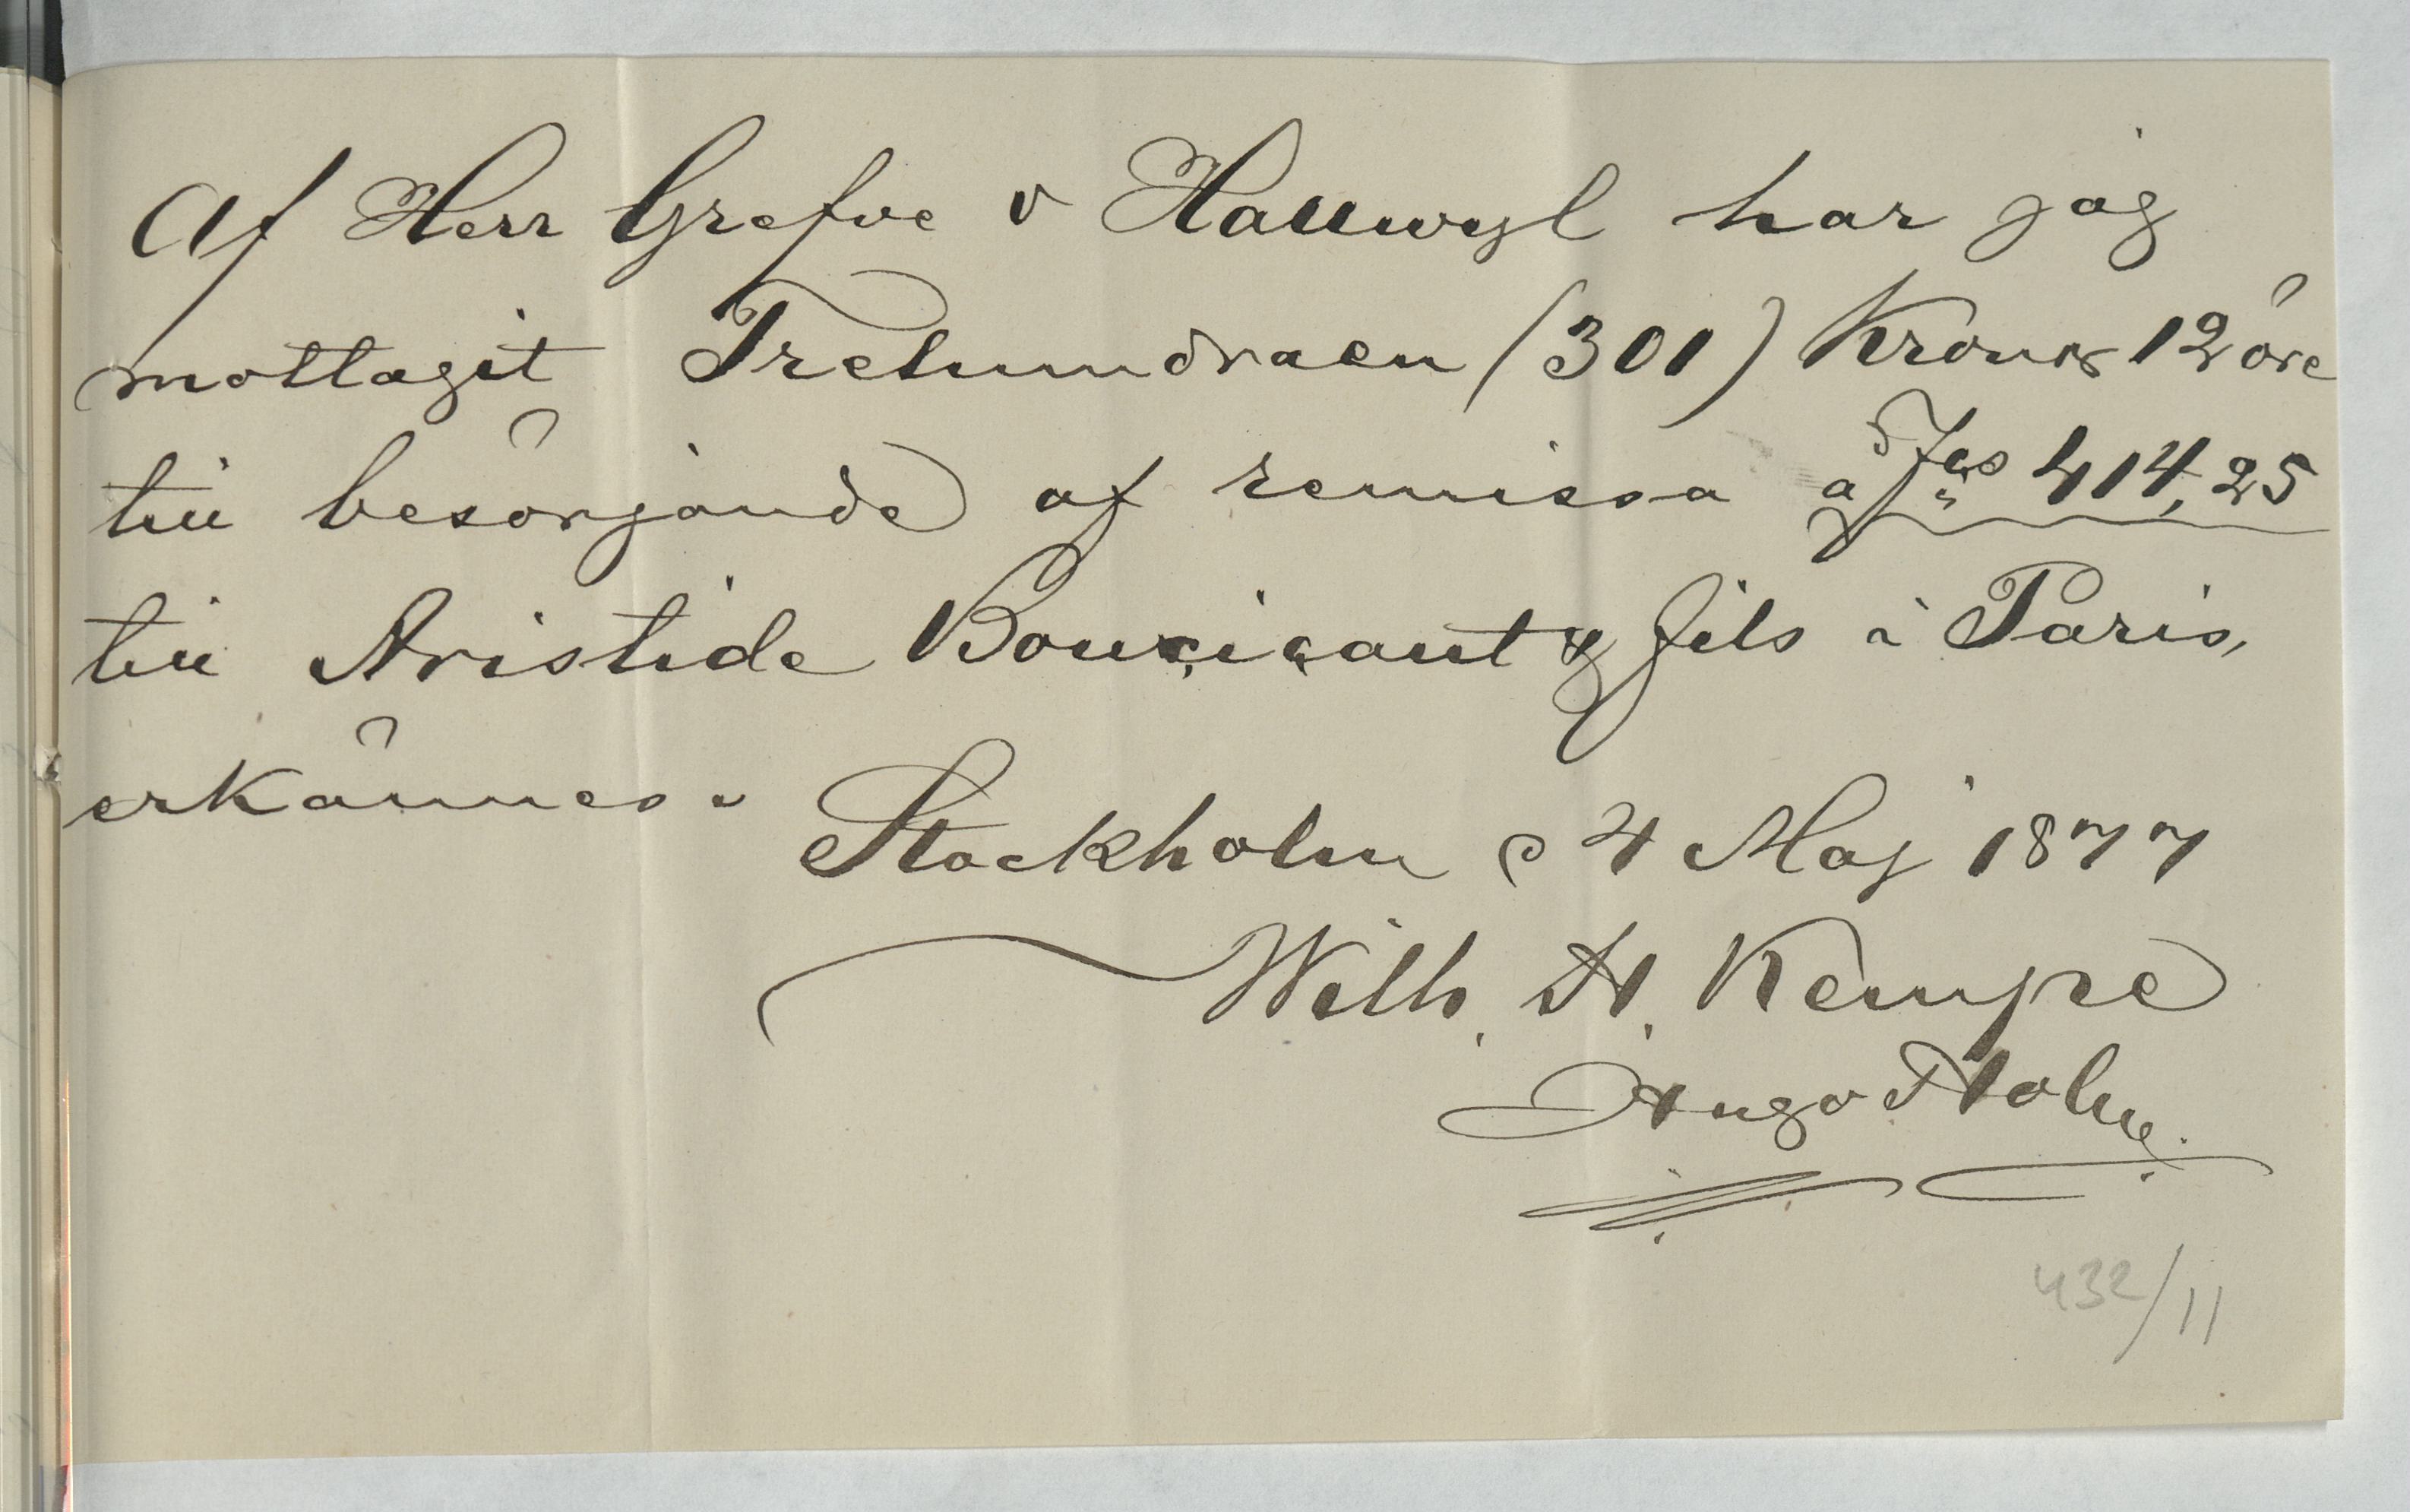 Af Herr Grefve v Hallwyl har jag
mottagit Trehundraen (301) Kronor 12 öre
till besörjande af remissa á Fcs 414,25
till Aristide Boucicaut & fils i Paris,
erkännes.
Stockholm d 4 Maj 1877
Wilh. H. Kempe
Hugo Holm
432/11